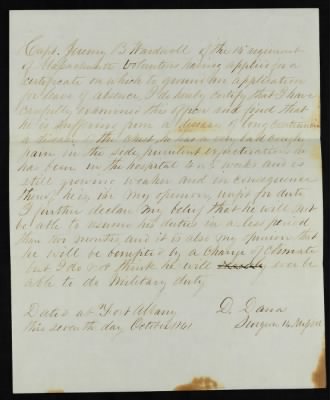 Capt. Jeremy B Wardwell of the 14 regiment
of Massachusetts Volunteers having applied for a
certificate on which to ground an application
for leave of absence, I do hereby certify that I have
carefully examined this officer and find that
he is suffering from a disease of long
a disease of the chest he has cough
pain in the side purulent expectoration
has been in the hospital 4 or 5 weeks and is
still growing weaker and in consequence
thereof he is in my opinion, unfit for duty
I further declare my belief that he will not
be able to resume his duties in a less period
than two months, and it is also my opinion that
he will be benefited by a change of Climate
but I do not think he will ever be
able to do Military duty
Dated at Fort Albany
this seventh day October 1861
D. Dana
Surgeon 14 Regt